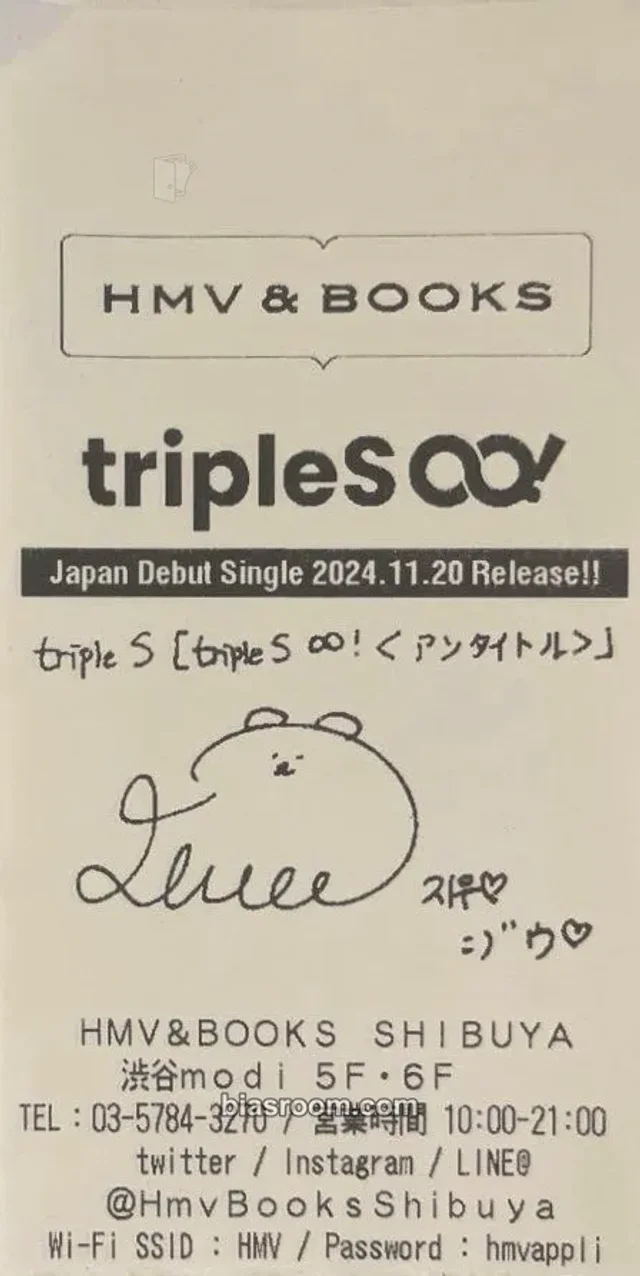 HMV & BOOKS
tripleS∞!
Japan Debut Single 2024.11.20 Release!!
triple S [triple S ∞! <アンタイトル>」
지우♡
ジウ♡
HMV&BOOKS SHIBUYA
渋谷modi 5F・6F
TEL:03-5784-3270 / 営業時間 10:00-21:00
biasroom.com
twitter / Instagram / LINE@
@HmvBooksShibuya
Wi-Fi SSID : HMV / Password : hmvappli